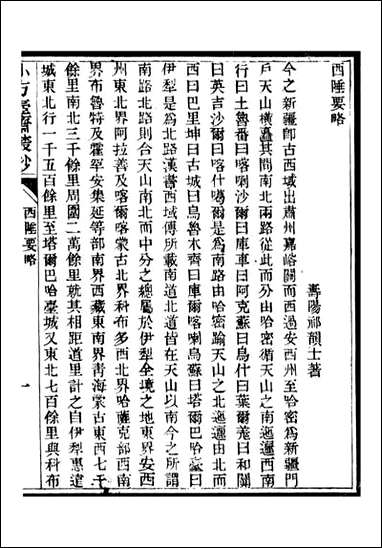 西陲要略
壽陽祁韻士著
今之新疆卽古西域出肅州嘉峪關而西過安西州至哈密爲新疆門
戶天山橫亘其間南北兩路從此而分由哈密循天山之南迤邐西南
行曰土魯番曰喀喇沙爾曰庫車曰阿克蘇曰烏什曰葉爾羌曰和闐
曰英吉沙爾曰喀什噶爾是爲南路由哈密踰天山之北迤邐由北而
西曰巴里坤曰古城曰烏魯木齊曰庫爾喀喇烏蘇曰塔爾巴哈臺曰
伊犂是爲北路漢書西域傳所載南道北道皆在天山以南今之所謂
南路北路則合天山南北而中分之總屬於伊犂全境之地東界安西
州東北界阿拉善及喀爾喀蒙古北界科布多西北界哈薩克部西南
界布魯特及霍罕安集延等部南界西藏東南界靑海蒙古東西七千
餘里南北三千餘里周圍二萬餘里就其相距道里計之自伊犂惠遠
城東北行一千五百餘里至塔爾巴哈臺城又東北七百餘里與科布
小方壺齋叢鈔
西陲要略
一